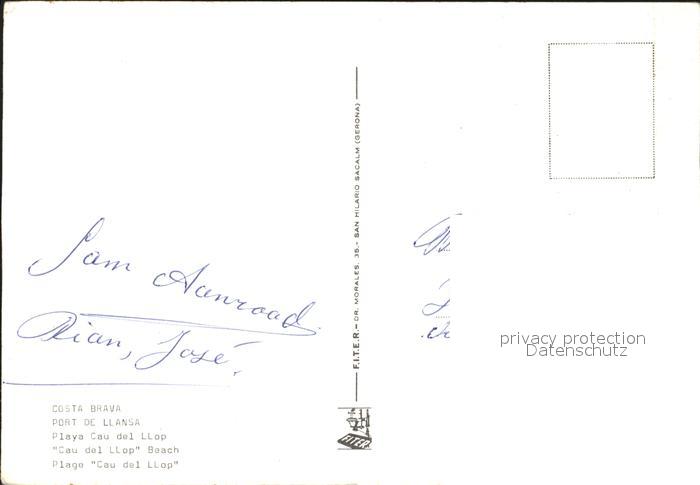 Rian, José,
COSTA BRAVA
PORT DE LLANSA
Playa Cau del LLop
"Cau del LLop" Beach
Plage "Cau del LLop"
F.I.T.E.R.-DR. MORALES, 35.- SAN HILARIO SACALM (GERONA)
FITER
privacy protection
Datenschutz